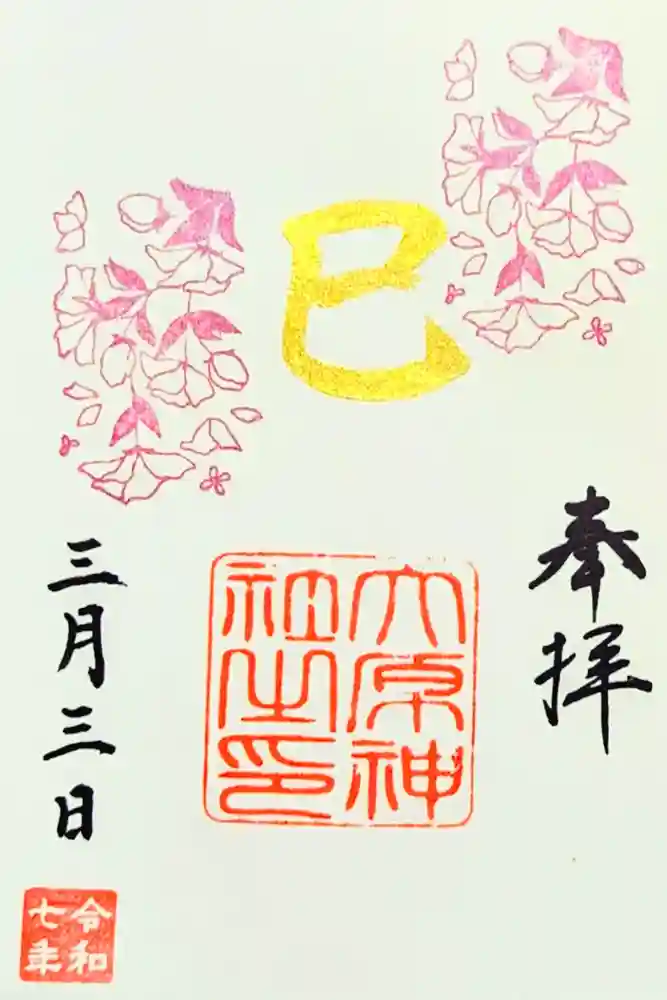 奉拝
巳
大原神
社之印
三月三日
令和
七年